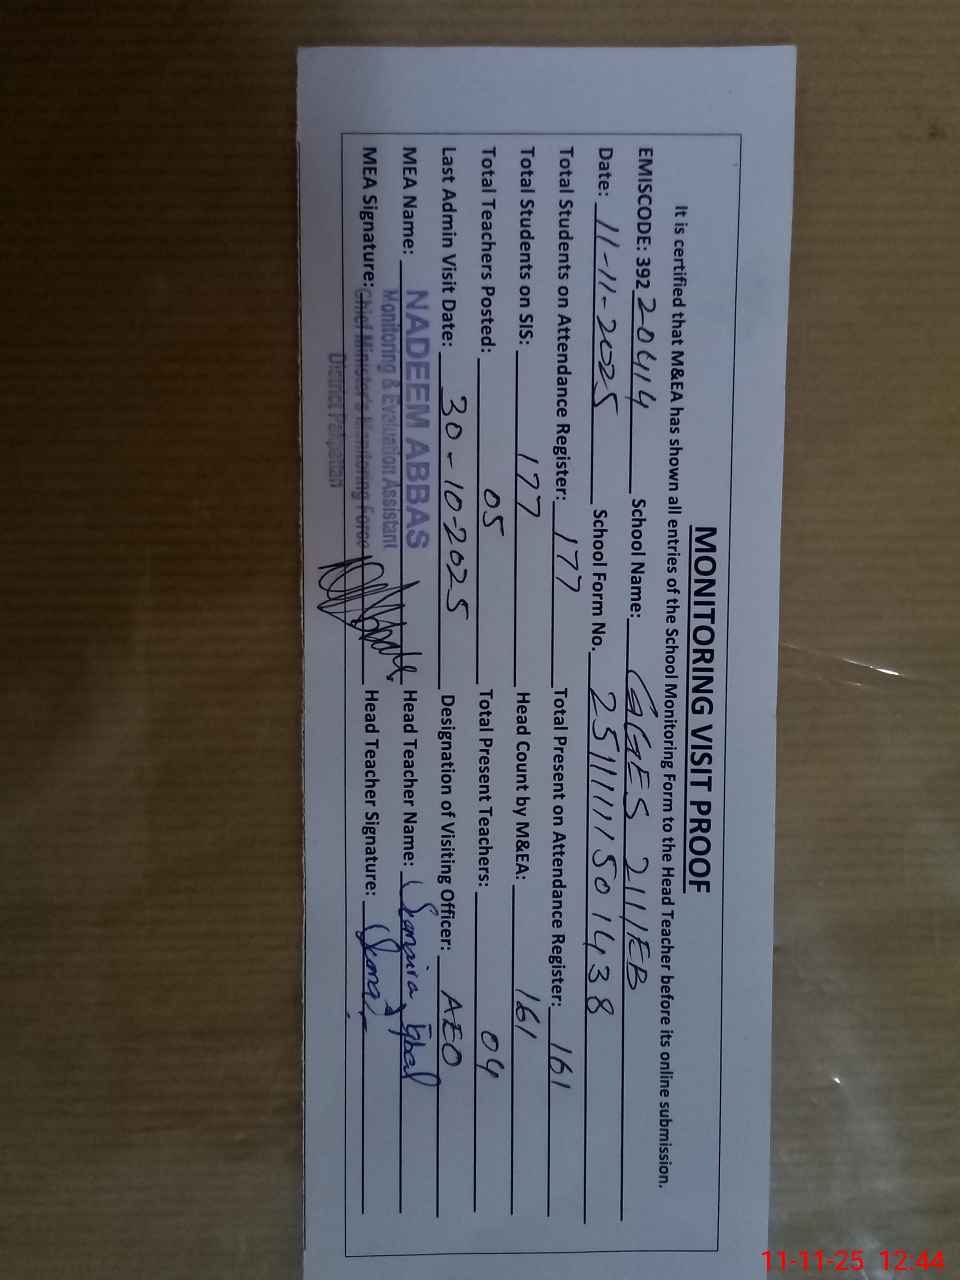 MONITORING VISIT PROOF
It is certified that M&EA has shown all entries of the School Monitoring Form to the Head Teacher before its online submission.
EMISCODE: 392 20414 School Name: GGES 21/1EB
Date: 11-11-2025 School Form No. 2511111501438
Total Students on Attendance Register: 177 Total Present on Attendance Register: 161
Total Students on SIS: 177 Head Count by M&EA: 161
Total Teachers Posted: 05 Total Present Teachers: 04
Last Admin Visit Date: 30-10-2025 Designation of Visiting Officer: AEO
MEA Name: NADEEM ABBAS Head Teacher Name: Iqbal
Monitoring & Evaluation Assistant
MEA Signature: Chief Minister's Monitoring Force Head Teacher Signature:
District Pakpattan
11-11-25 12:44